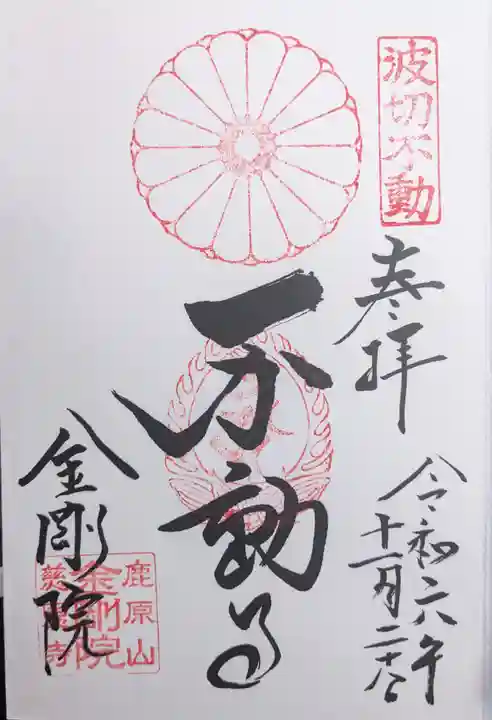 波切不動
奉拝
令和六年
十一月二十六日
不動尊
金剛院
鹿原山
金剛院
慈恩寺